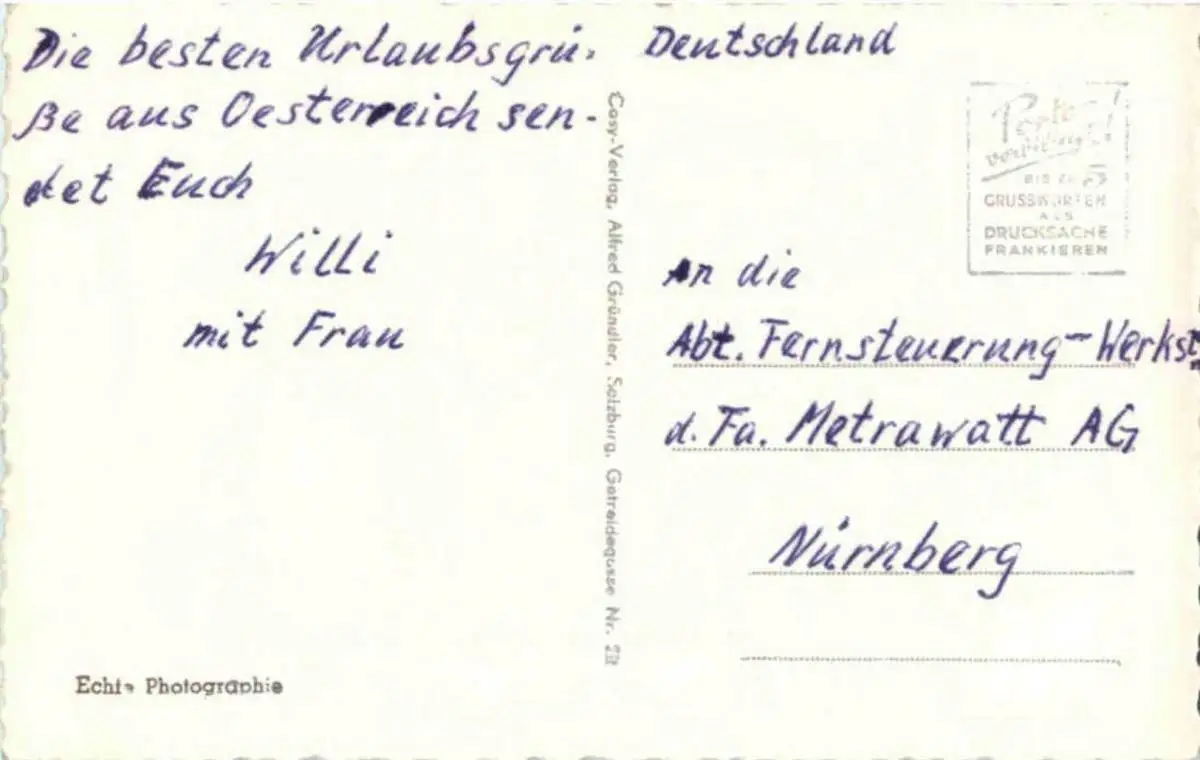 Die besten Urlaubsgrü-
ße aus Oesterreich sen-
det Euch
Willi
mit Frau
Echte Photographie
Cosy-Verlag, Alfred Gründler, Salzburg, Getreidegasse Nr. 22
Deutschland
Porto
BIS ZU 5
GRUSSWORTEN
ALS
DRUCKSACHE
FRANKIEREN
An die
Abt. Fernsteuerung-Werkst
d. Fa. Metrawatt AG
Nürnberg